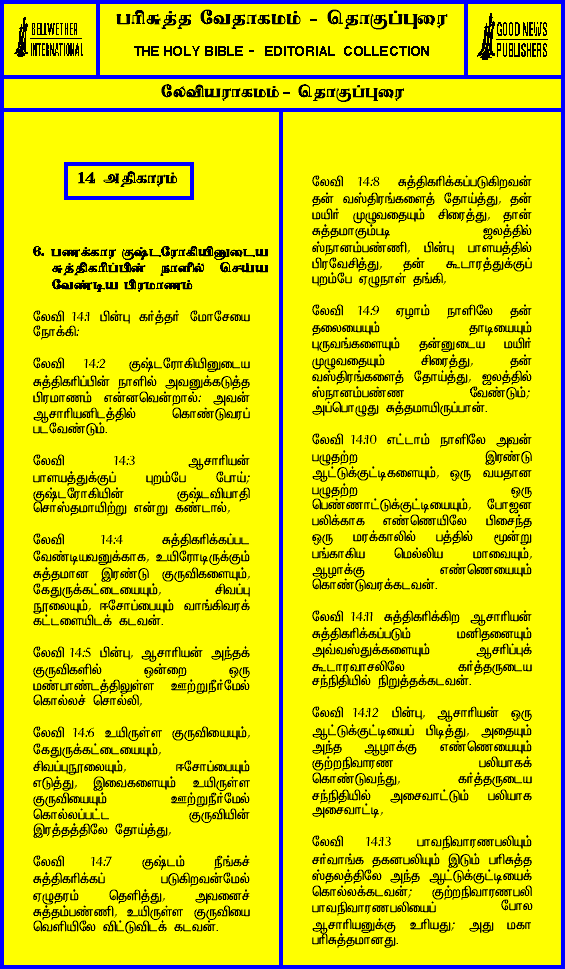 BELLWETHER
INTERNATIONAL
பரிசுத்த வேதாகமம் - தொகுப்புரை
THE HOLY BIBLE - EDITORIAL COLLECTION
GOOD NEWS
PUBLISHERS
லேவியராகமம் - தொகுப்புரை
14 அதிகாரம்
6. பணக்கார குஷ்டரோகியினுடைய
சுத்திகரிப்பின் நாளில் செய்ய
வேண்டிய பிரமாணம்
லேவி 14:1 பின்பு கர்த்தர் மோசேயை
நோக்கி:
லேவி 14:2 குஷ்டரோகியினுடைய
சுத்திகரிப்பின் நாளில் அவனுக்கடுத்த
பிரமாணம் என்னவென்றால்: அவன்
ஆசாரியனிடத்தில் கொண்டுவரப்
படவேண்டும்.
லேவி 14:3 ஆசாரியன்
பாளயத்துக்குப் புறம்பே போய்;
குஷ்டரோகியின் குஷ்டவியாதி
சொஸ்தமாயிற்று என்று கண்டால்,
லேவி 14:4 சுத்திகரிக்கப்பட
வேண்டியவனுக்காக, உயிரோடிருக்கும்
சுத்தமான இரண்டு குருவிகளையும்,
கேதுருக்கட்டையையும், சிவப்பு
நூலையும், ஈசோப்பையும் வாங்கிவரக்
கட்டளையிடக் கடவன்.
லேவி 14:5 பின்பு, ஆசாரியன் அந்தக்
குருவிகளில் ஒன்றை ஒரு
மண்பாண்டத்திலுள்ள ஊற்றுநீர்மேல்
கொல்லச் சொல்லி,
லேவி 14:6 உயிருள்ள குருவியையும்,
கேதுருக்கட்டையையும்,
சிவப்புநூலையும், ஈசோப்பையும்
எடுத்து, இவைகளையும் உயிருள்ள
குருவியையும் ஊற்றுநீர்மேல்
கொல்லப்பட்ட குருவியின்
இரத்தத்திலே தோய்த்து,
லேவி 14:7 குஷ்டம் நீங்கச்
சுத்திகரிக்கப் படுகிறவன்மேல்
ஏழுதரம் தெளித்து, அவனைச்
சுத்தம்பண்ணி, உயிருள்ள குருவியை
வெளியிலே விட்டுவிடக் கடவன்.
லேவி 14:8 சுத்திகரிக்கப்படுகிறவன்
தன் வஸ்திரங்களைத் தோய்த்து, தன்
மயிர் முழுவதையும் சிரைத்து, தான்
சுத்தமாகும்படி ஜலத்தில்
ஸ்நானம்பண்ணி, பின்பு பாளயத்தில்
பிரவேசித்து, தன் கூடாரத்துக்குப்
புறம்பே ஏழுநாள் தங்கி,
லேவி 14:9 ஏழாம் நாளிலே தன்
தலையையும் தாடியையும்
புருவங்களையும் தன்னுடைய மயிர்
முழுவதையும் சிரைத்து, தன்
வஸ்திரங்களைத் தோய்த்து, ஜலத்தில்
ஸ்நானம்பண்ண வேண்டும்;
அப்பொழுது சுத்தமாயிருப்பான்.
லேவி 14:10 எட்டாம் நாளிலே அவன்
பழுதற்ற இரண்டு
ஆட்டுக்குட்டிகளையும், ஒரு வயதான
பழுதற்ற ஒரு
பெண்ணாட்டுக்குட்டியையும், போஜன
பலிக்காக எண்ணெயிலே பிசைந்த
ஒரு மரக்காலில் பத்தில் மூன்று
பங்காகிய மெல்லிய மாவையும்,
ஆழாக்கு எண்ணெயையும்
கொண்டுவரக்கடவன்.
லேவி 14:11 சுத்திகரிக்கிற ஆசாரியன்
சுத்திகரிக்கப்படும் மனிதனையும்
அவ்வஸ்துக்களையும் ஆசரிப்புக்
கூடாரவாசலிலே கர்த்தருடைய
சந்நிதியில் நிறுத்தக்கடவன்.
லேவி 14:12 பின்பு, ஆசாரியன் ஒரு
ஆட்டுக்குட்டியைப் பிடித்து, அதையும்
அந்த ஆழாக்கு எண்ணெயையும்
குற்றநிவாரண பலியாகக்
கொண்டுவந்து, கர்த்தருடைய
சந்நிதியில் அசைவாட்டும் பலியாக
அசைவாட்டி,
லேவி 14:13 பாவநிவாரணபலியும்
சர்வாங்க தகனபலியும் இடும் பரிசுத்த
ஸ்தலத்திலே அந்த ஆட்டுக்குட்டியைக்
கொல்லக்கடவன்; குற்றநிவாரணபலி
பாவநிவாரணபலியைப் போல
ஆசாரியனுக்கு உரியது; அது மகா
பரிசுத்தமானது.